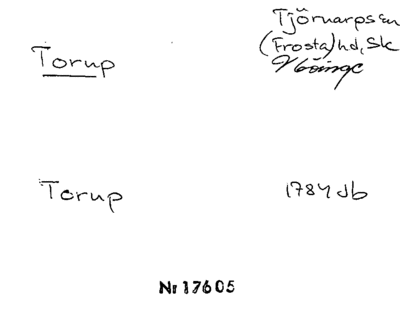 Tjörnarps sn
Torup (Frosta) hd, Sk
V Göinge
Torup 1784 Jb
Nr 17605